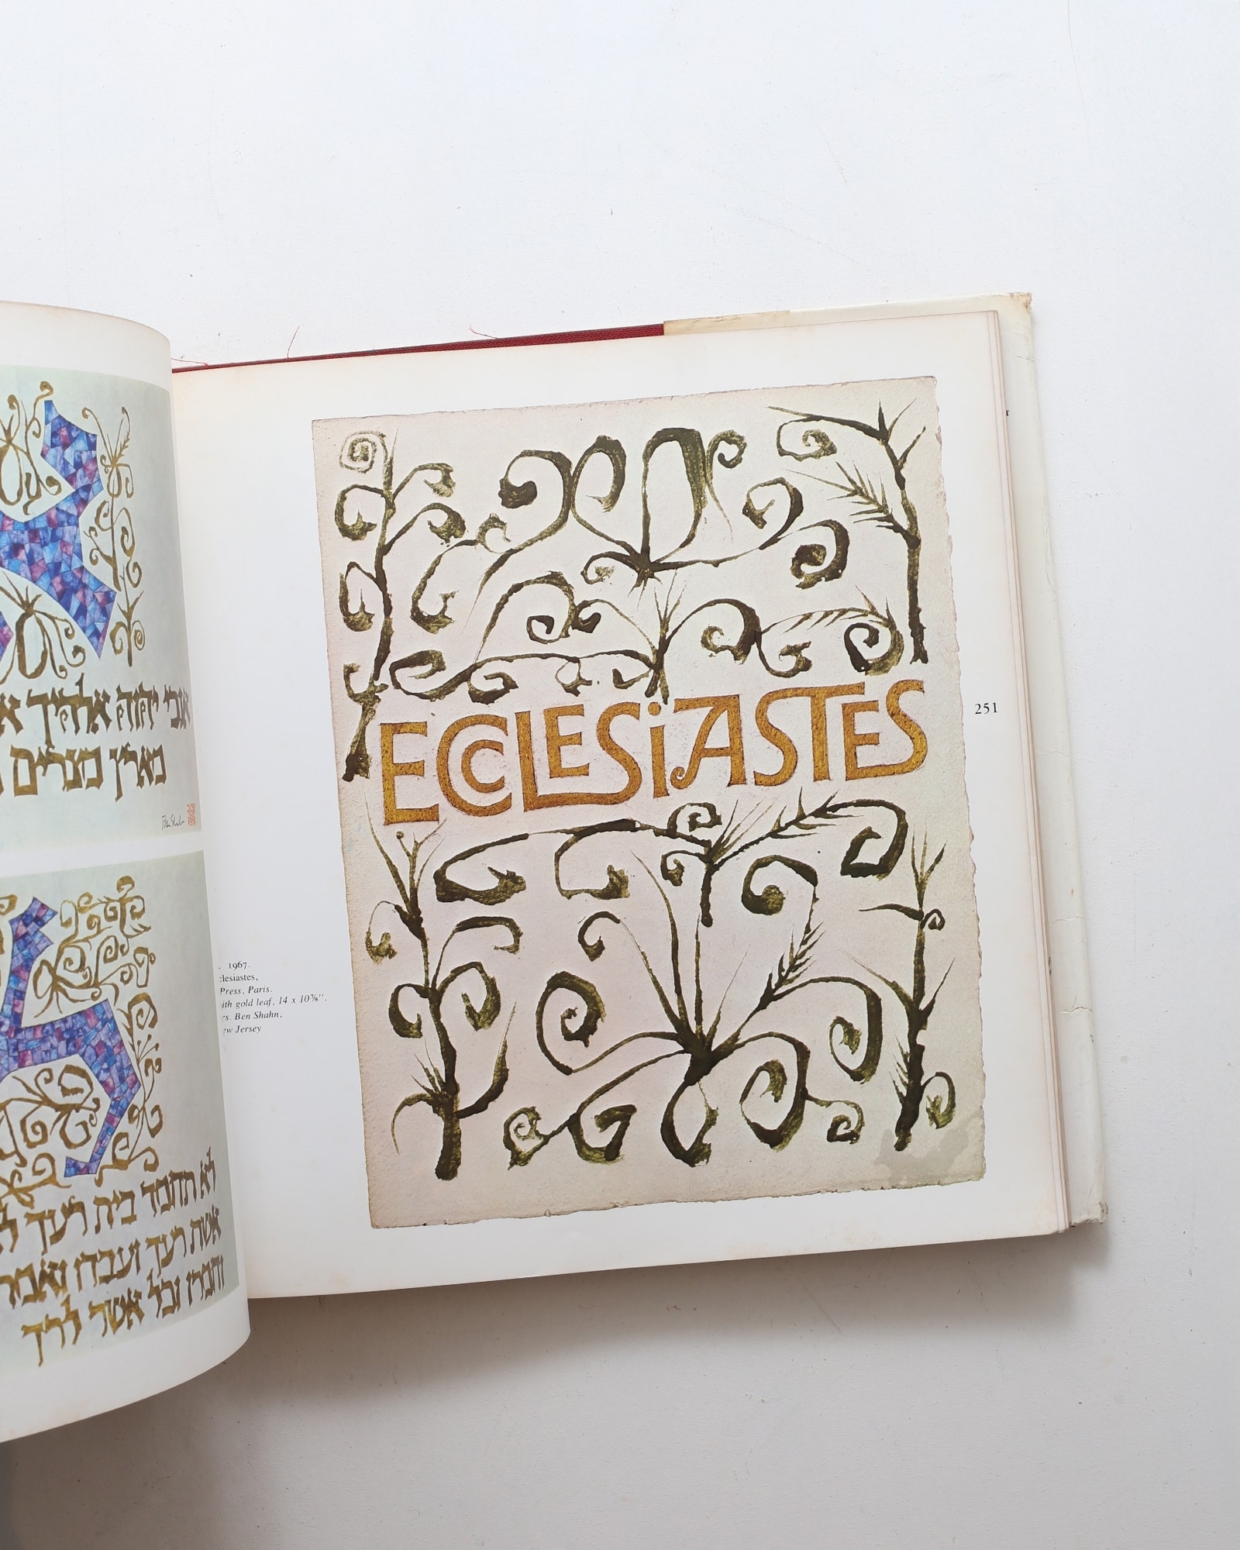 אנכי יהוה אלהיך
מארץ מצרים
לא תחמד בית רעך
אשת רעך ועבדו ואמתו
וחמרו וכל אשר לרעך
. 1967.
clesiastes,
Press, Paris.
ith gold leaf, 14 x 10⅝".
rs. Ben Shahn,
ew Jersey
ECCLESiASTES
251